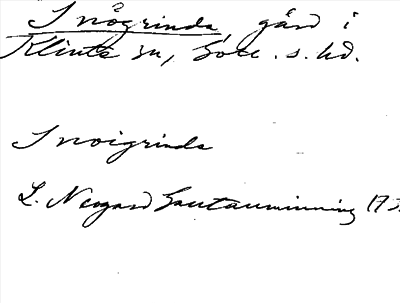 Snögrinda gård i
Klinte sn, Gotl. s. hd.
Snoigrinda
L. Neogard Gautauminning 17